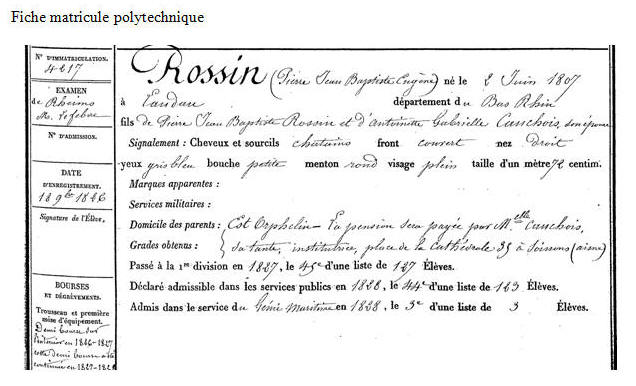 Fiche matricule polytechnique
N° D'IMMATRICULATION.
4217
EXAMEN
de Rheims
M. Lefebvre
N° D'ADMISSION.
DATE
D'ENREGISTREMENT.
18 9bre 1826
Signature de l'Élève,
BOURSES
ET DÉGRÈVEMENTS.
Trousseau et première
mise d'équipement.
Demi bourse sur
1826-1827
cette demi bourse a été
continuée en 1827-1828
Rossin (Pierre Jean Baptiste Eugène) né le 2 Juin 1807
à Landau département du Bas Rhin
fils de Pierre Jean Baptiste Rossin et d'Antoinette Gabrielle Cauchois, son épouse
Signalement : Cheveux et sourcils chatains front couvert nez Droit
yeux gris bleu bouche petite menton rond visage plein taille d'un mètre 72 centim.
Marques apparentes :
Services militaires :
Domicile des parents : Est Orphelin – La pension sera payée par Melle Cauchois,
Grades obtenus : sa tante, institutrice, place de la Cathédrale 35 à Soissons (aisne)
Passé à la 1re division en 1827, le 45e d'une liste de 127 Élèves.
Déclaré admissible dans les services publics en 1828, le 44e d'une liste de 123 Élèves.
Admis dans le service du Génie Maritime en 1828, le 3e d'une liste de 3 Élèves.